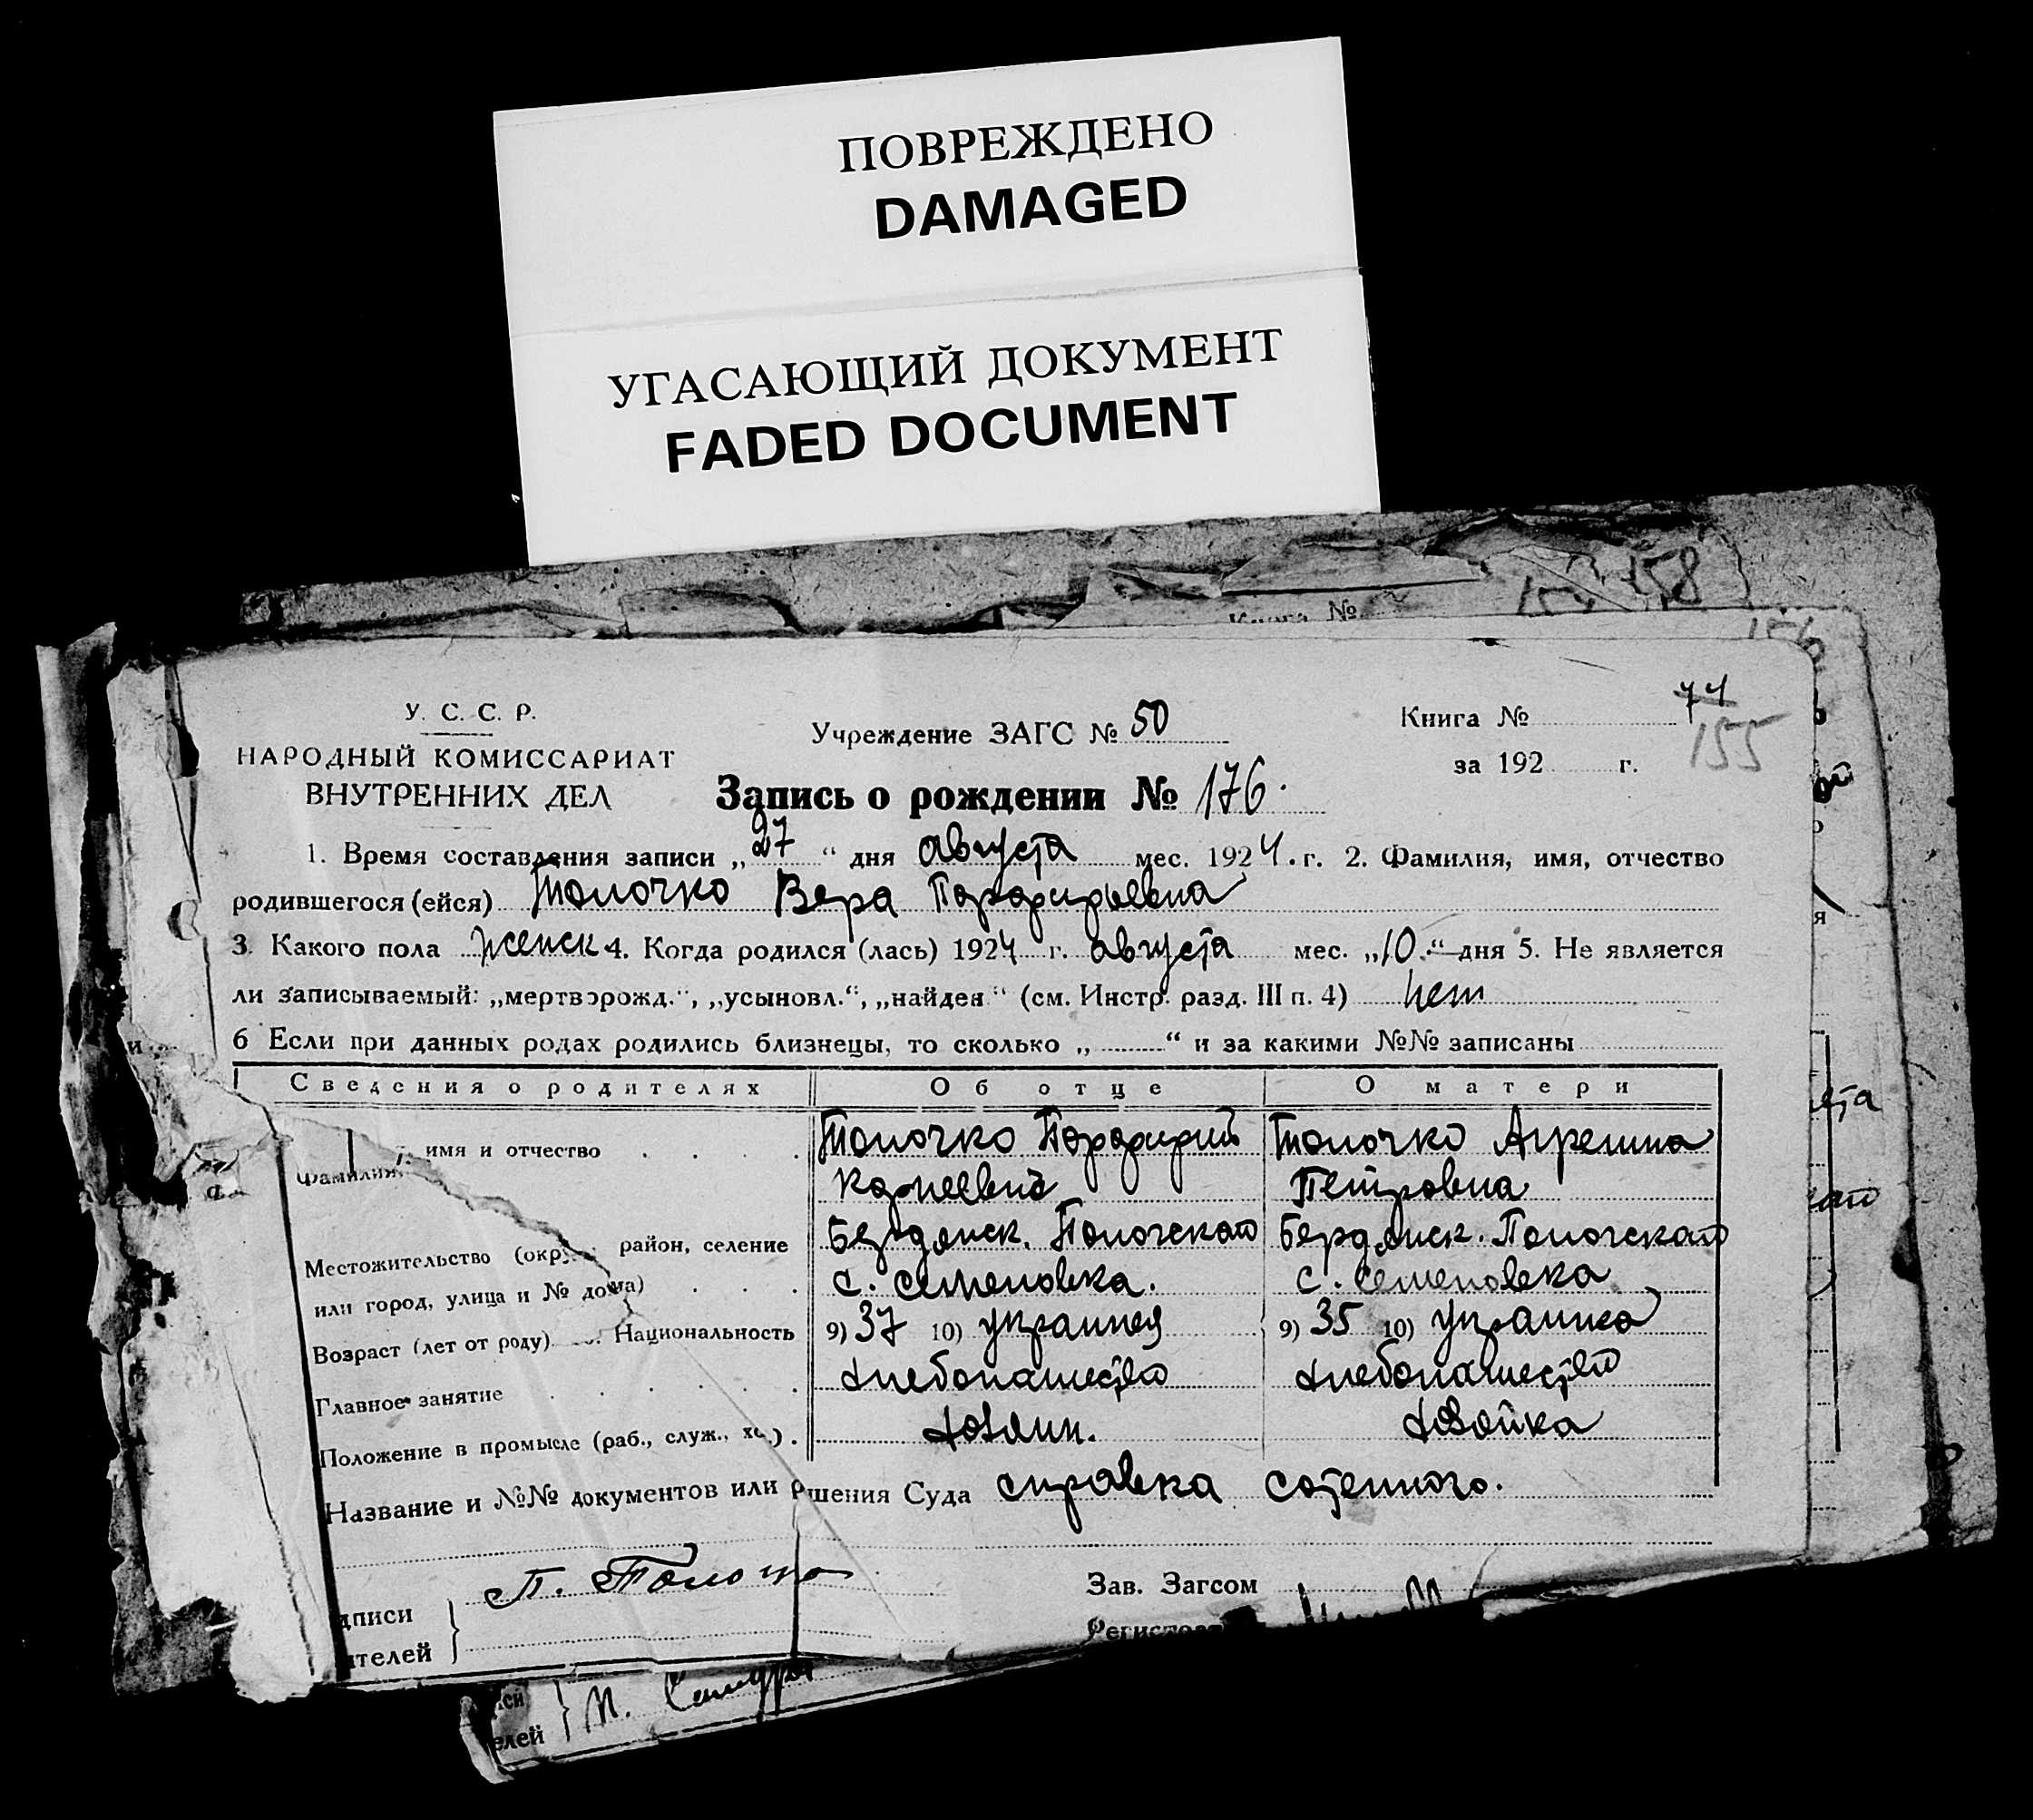 ПОВРЕЖДЕНО
DAMAGED
УГАСАЮЩИЙ ДОКУМЕНТ
FADED DOCUMENT
158
Книга №
156
У. С. С. Р.
НАРОДНЫЙ КОМИССАРИАТ
ВНУТРЕННИХ ДЕЛ
Учреждение ЗАГС № 50
Книга № 77
за 192 г. 155
Запись о рождении № 176.
1. Время составления записи „27“ дня августа мес. 1924. г. 2. Фамилия, имя, отчество
родившегося (ейся) Толочко Вера Порфирьевна
3. Какого пола женск 4. Когда родился (лась) 1924 г. августа мес. „10.“ дня 5. Не является
ли записываемый: „мертворожд.“, „усыновл.“, „найден“ (см. Инстр. разд. III п. 4) нет
6 Если при данных родах родились близнецы, то сколько „ “ и за какими №№ записаны
Сведения о родителях Об отце О матери
Фамилия, имя и отчество Толочко Порфирий Толочко Агрепина
Корнеевич Петровна
Местожительство (окр. район, селение Бердянск. Пологского Бердянск. Пологского
или город, улица и № дома) с. Семеновка. с. Семеновка
Возраст (лет от роду) Национальность 9) 37 10) украинец 9) 35 10) украинка
Главное занятие хлебопашество хлебопашество
Положение в промысле (раб., служ., хо.) хозяин. хозяйка
Название и №№ документов или ршения Суда справка сотенного.
дписи П. Толочко
ителей
Зав. Загсом
Регистра
си
елей М.